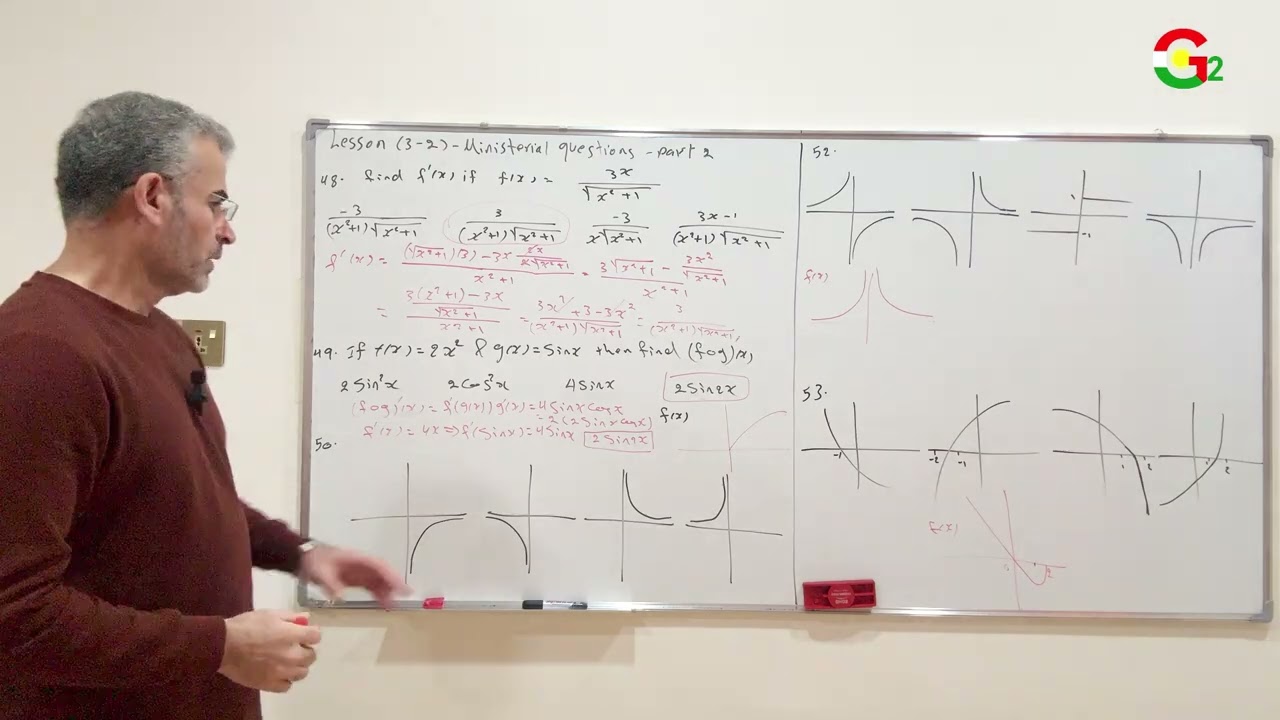 G2
Lesson (3-2) - Ministerial questions - part 2
48. find f'(x) if f(x) = 3x / √(x²+1)
-3 / (x²+1)√(x²+1)   3 / (x²+1)√(x²+1)   -3 / x√(x²+1)   3x-1 / (x²+1)√(x²+1)
f'(x) = ((√(x²+1))(3) - 3x 2x / 2√(x²+1)) / x²+1 = (3√(x²+1) - 3x² / √(x²+1)) / x²+1
= ((3(x²+1) - 3x) / √(x²+1)) / x²+1 = 3x² + 3 - 3x² / (x²+1)√(x²+1) = 3 / (x²+1)√(x²+1)
49. If f(x) = 2x² & g(x) = sinx then find (fog)'(x)
2 sin²x   2 cos²x   4 sinx   2 sin2x
(fog)'(x) = f'(g(x)) g'(x) = 4 sinx cosx
= 2(2 sinx cosx)
f'(x) = 4x ⇒ f'(sinx) = 4 sinx   2 sin2x
f(x)
50.
52.
1
-1
f(x)
53.
-1
-2 -1
1 2
2
f(x)
2